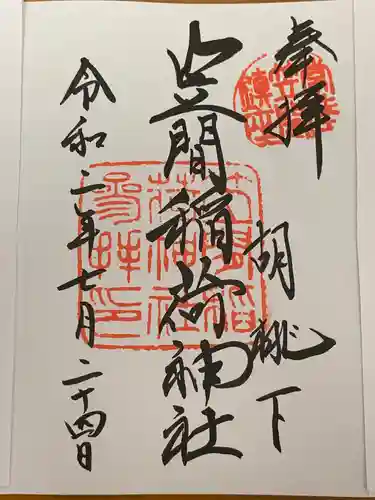 奉拝
胡桃下
笠間稲荷神社
令和二年七月二十四日